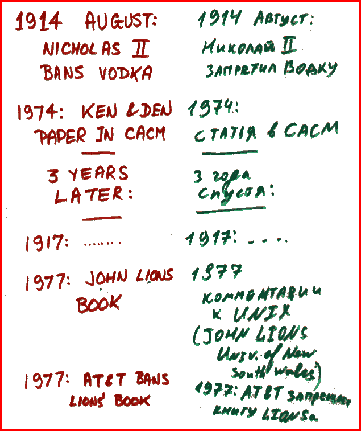 1914 AUGUST:
NICHOLAS II
BANS VODKA
1974: KEN & DEN
PAPER IN CACM
3 YEARS
LATER:
1917: ........
1977: JOHN LIONS
BOOK
1977: AT&T BANS
LIONS' BOOK
1914 Август:
Николай II
запретил Водку
1974:
СТАТІЯ в CACM
3 года
спустя:
1917: ....
1977
комментарии
к UNIX
(JOHN LIONS
Univ. of New
South Wales)
1977: AT&T запретил
книгу LIONSa